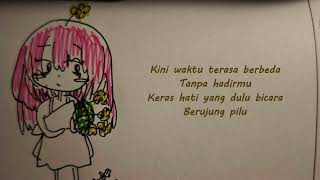 Kini waktu terasa berbeda
Tanpa hadirmu
Keras hati yang dulu bicara
Berujung pilu